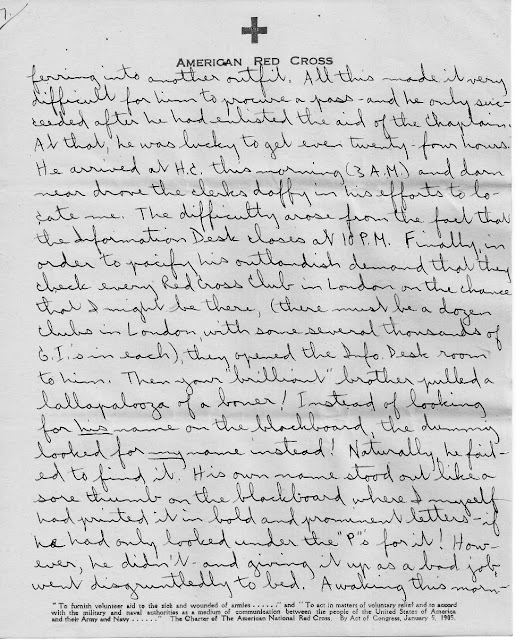 7.
AMERICAN RED CROSS
ferring into another outfit. All this made it very
difficult for him to procure a pass - and he only suc-
ceeded after he had enlisted the aid of the Chaplain.
At that, he was lucky to get even twenty-four hours.
He arrived at H.C. this morning (3 A.M.) and darn
near drove the clerks daffy in his efforts to lo-
cate me. The difficulty arose from the fact that
the Information Desk closes at 10 P.M. Finally, in
order to pacify his outlandish demand that they
check every Red Cross Club in London on the chance
that I might be there, (there must be a dozen
clubs in London with some several thousands of
G.I.'s in each), they opened the Info. Desk room
to him. Then your "brilliant" brother pulled a
lallapalooza of a boner! Instead of looking
for his name on the blackboard, the dummy
looked for my name instead! Naturally, he fail-
ed to find it. His own name stood out like a
sore thumb on the blackboard where I myself
had printed it in bold and prominent letters - if
he had only looked under the "P"s for it! How-
ever, he didn't - and giving it up as a bad job,
went disgruntledly to bed. Awaking this morn-
"To furnish volunteer aid to the sick and wounded of armies . . . . . ." and "To act in matters of voluntary relief and in accord
with the military and naval authorities as a medium of communication between the people of the United States of America
and their Army and Navy . . . . . ." The Charter of The American National Red Cross. By Act of Congress, January 5, 1905.